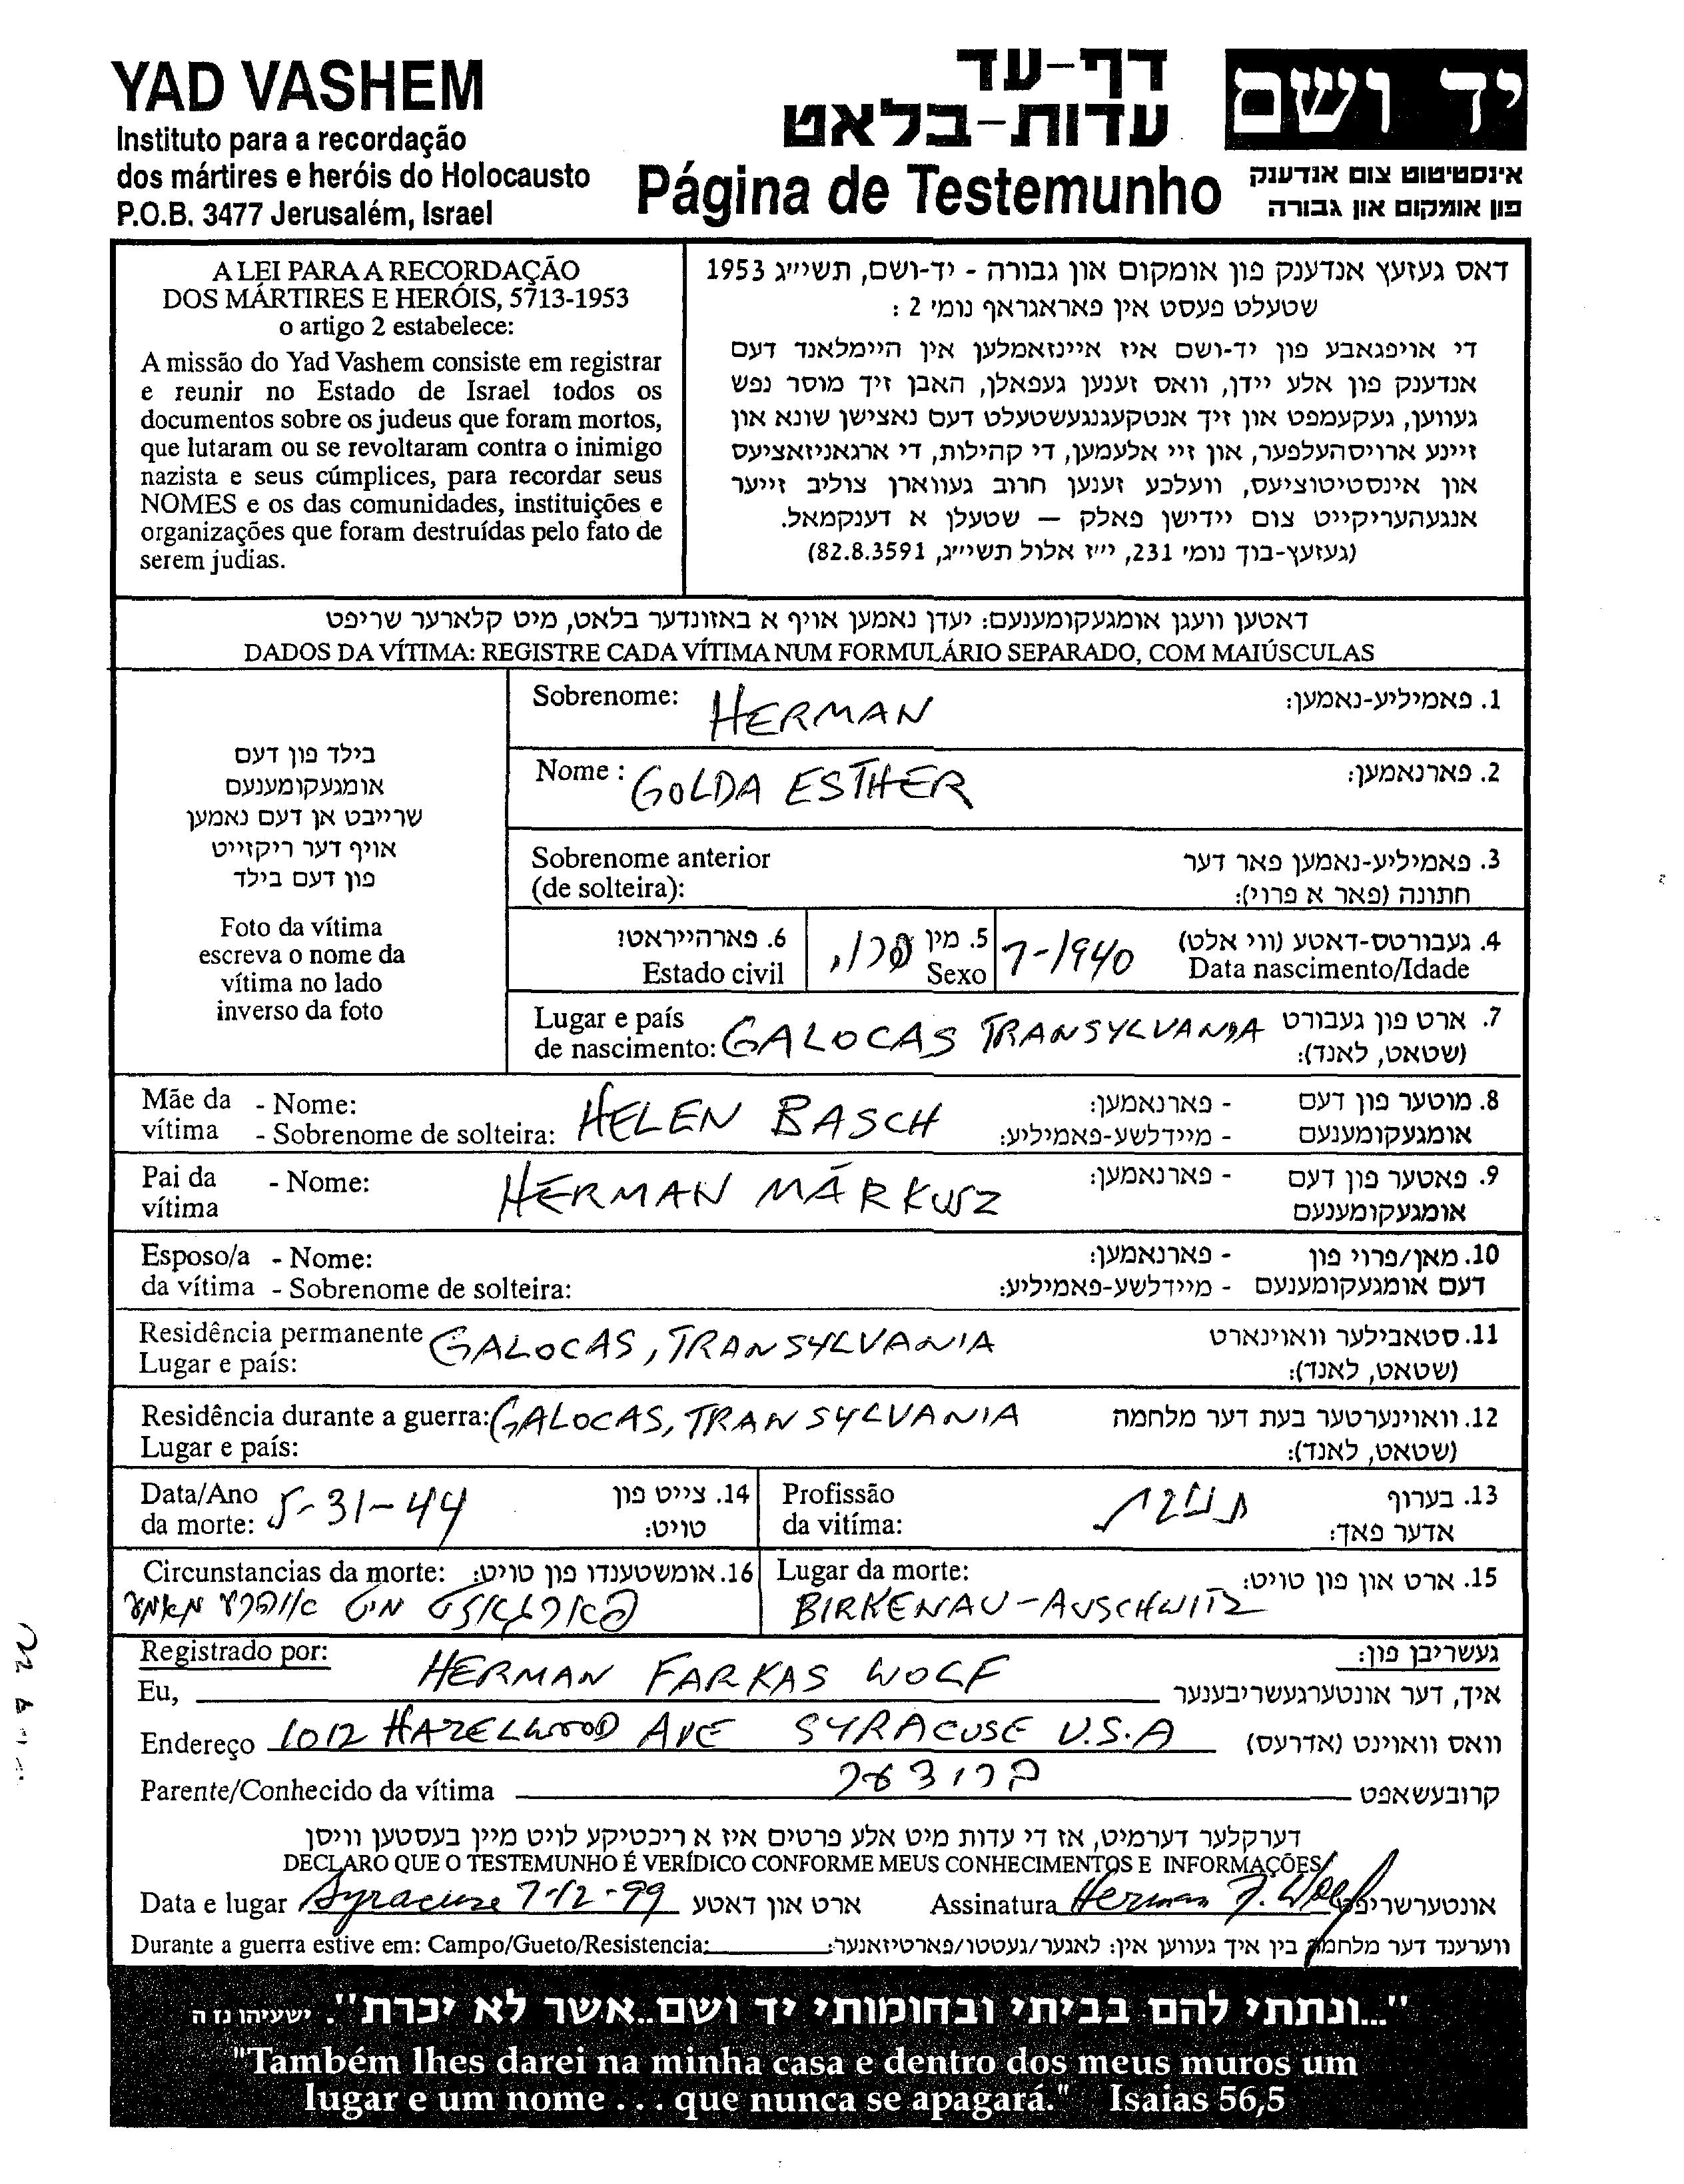 YAD VASHEM
Instituto para a recordação
dos mártires e heróis do Holocausto
P.O.B. 3477 Jerusalém, Israel
דף-עד
עדות-בלאט
Página de Testemunho
יד ושם
אינסטיטוט צום אנדענק
פון אומקום און גבורה
A LEI PARA A RECORDAÇÃO
DOS MÁRTIRES E HERÓIS, 5713-1953
o artigo 2 estabelece:
A missão do Yad Vashem consiste em registrar
e reunir no Estado de Israel todos os
documentos sobre os judeus que foram mortos,
que lutaram ou se revoltaram contra o inimigo
nazista e seus cúmplices, para recordar seus
NOMES e os das comunidades, instituições e
organizações que foram destruídas pelo fato de
serem judias.
דאס געזעץ אנדענק פון אומקום און גבורה - יד-ושם, תשי״ג 1953
שטעלט פעסט אין פאראגראף נומ׳ 2 :
די אויפגאבע פון יד-ושם איז איינזאמלען אין היימלאנד דעם
אנדענק פון אלע יידן, וואס זענען געפאלן, האבן זיך מוסר נפש
געווען, געקעמפט און זיך אנטקעגנגעשטעלט דעם נאצישן שונא און
זיינע ארויסהעלפער, און זיי אלעמען, די קהילות, די ארגאניזאציעס
און אינסטיטוציעס, וועלכע זענען חרוב געווארן צוליב זייער
אנגעהעריקייט צום יידישן פאלק — שטעלן א דענקמאל.
(געזעץ-בוך נומ׳ 231, י״ז אלול תשי״ג, 82.8.3591)
דאטען וועגן אומגעקומענעם: יעדן נאמען אויף א באזונדער בלאט, מיט קלארער שריפט
DADOS DA VÍTIMA: REGISTRE CADA VÍTIMA NUM FORMULÁRIO SEPARADO, COM MAIÚSCULAS
בילד פון דעם
אומגעקומענעם
שרייבט אן דעם נאמען
אויף דער ריקזייט
פון דעם בילד
Foto da vítima
escreva o nome da
vítima no lado
inverso da foto
Sobrenome: HERMAN 1. פאמיליע-נאמען:
Nome : GOLDA ESTHER 2. פארנאמען:
Sobrenome anterior 3. פאמיליע-נאמען פאר דער
(de solteira): חתונה (פאר א פרוי):
6. פארהייראט? 5. מין 4. געבורטס-דאטע (ווי אלט)
Estado civil Sexo 7-1940 Data nascimento/Idade
Lugar e país 7. ארט פון געבורט
de nascimento: GALOCAS TRANSYLVANIA (שטאט, לאנד):
Mãe da - Nome: - פארנאמען: 8. מוטער פון דעם
vítima - Sobrenome de solteira: HELEN BASCH - מיידלשע-פאמיליע: אומגעקומענעם
Pai da - Nome: HERMAN MÁRKUSZ - פארנאמען: 9. פאטער פון דעם
vítima אומגעקומענעם
Esposo/a - Nome: - פארנאמען: 10. מאן/פרוי פון
da vítima - Sobrenome de solteira: - מיידלשע-פאמיליע: דעם אומגעקומענעם
Residência permanente GALOCAS, TRANSYLVANIA 11. סטאבילער וואוינארט
Lugar e país: (שטאט, לאנד):
Residência durante a guerra: GALOCAS, TRANSYLVANIA 12. וואוינערטער בעת דער מלחמה
Lugar e país: (שטאט, לאנד):
Data/Ano 5-31-44 14. צייט פון Profissão 13. בערוף
da morte: טויט: da vitíma: אדער פאך:
Circunstancias da morte: 16. אומשטענדן פון טויט: Lugar da morte: 15. ארט און פון טויט:
פארגאזט מיט מאמע BIRKENAU - AUSCHWITZ
Registrado por: געשריבן פון:
Eu, HERMAN FARKAS WOLF איך, דער אונטערגעשריבענער
Endereço 1012 HAZELWOOD AVE SYRACUSE U.S.A וואס וואוינט (אדרעס)
Parente/Conhecido da vítima ברודער קרובעשאפט
דערקלער דערמיט, אז די עדות מיט אלע פרטים איז א ריכטיקע לויט מיין בעסטען וויסן
DECLARO QUE O TESTEMUNHO É VERÍDICO CONFORME MEUS CONHECIMENTOS E INFORMAÇÕES
Data e lugar Syracuse 7-12-99 ארט און דאטע Assinatura Herman F. Wolf אונטערשריפט
Durante a guerra estive em: Campo/Gueto/Resistencia: ווערענד דער מלחמה בין איך געווען אין: לאגער/געטטו/פארטיזאנער:
"...ונתתי להם בביתי ובחומותי יד ושם..אשר לא יכרת". ישעיהו נו ה
"Também lhes darei na minha casa e dentro dos meus muros um
lugar e um nome . . . que nunca se apagará." Isaias 56,5